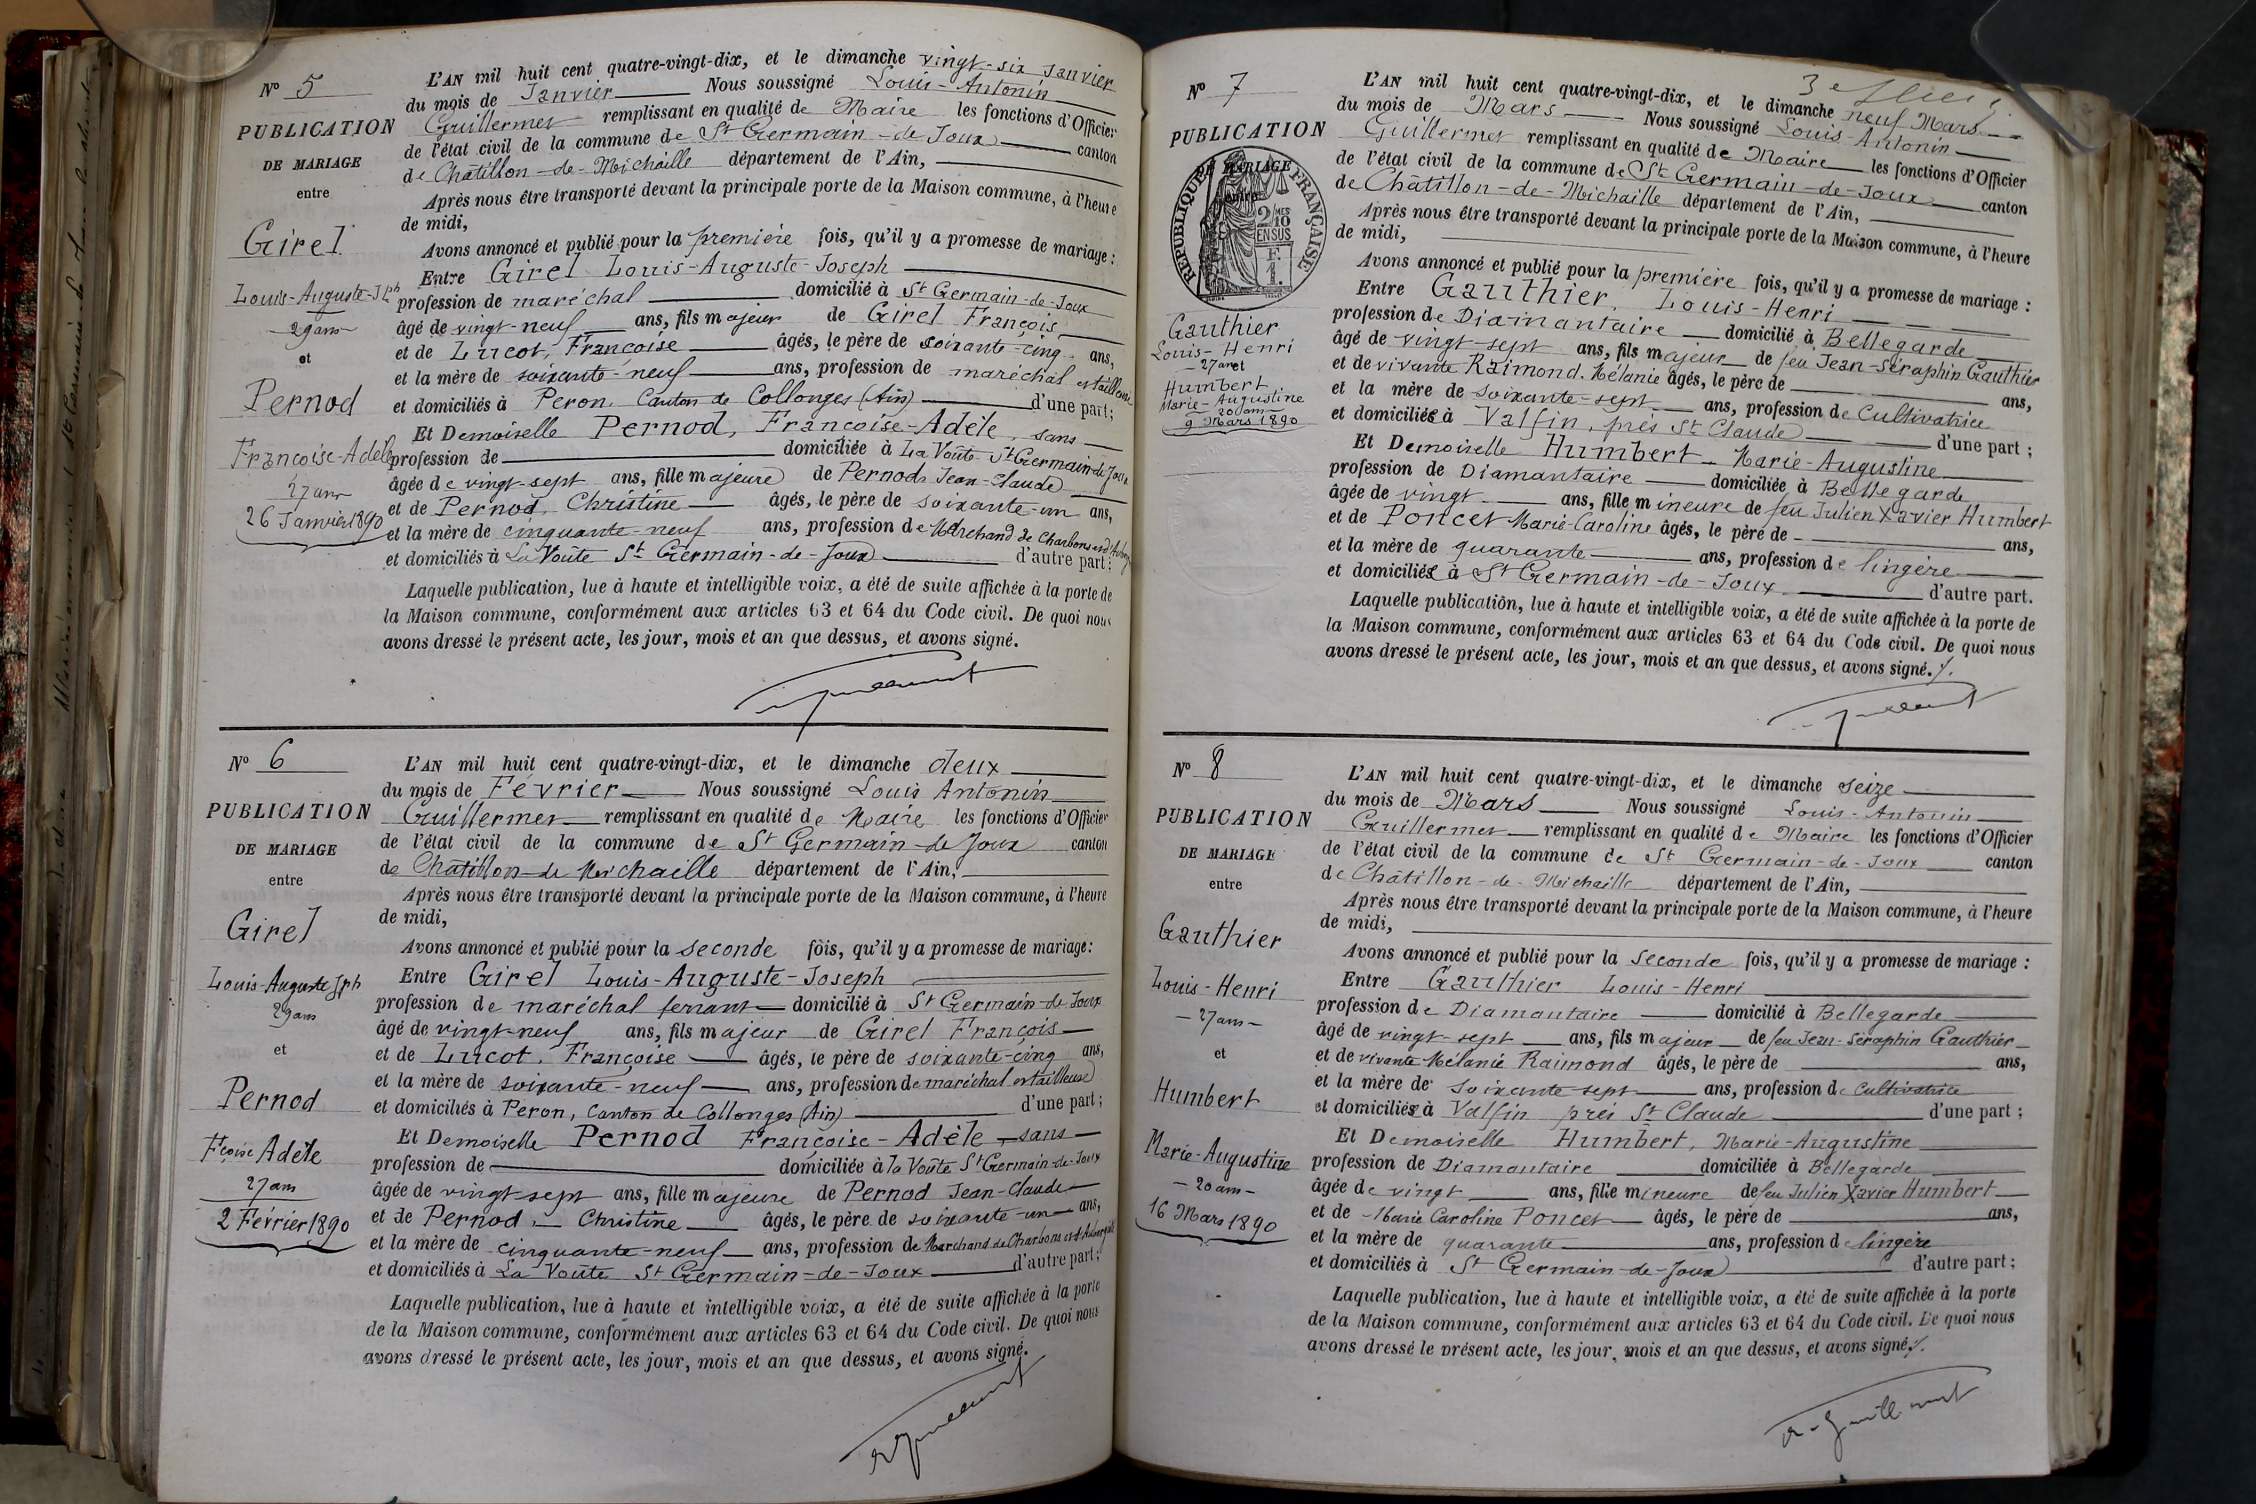 N° 5
PUBLICATION
DE MARIAGE
entre
Girel
Louis-Auguste-Jph
29 ans
et
Pernod
Françoise-Adèle
27 ans
26 Janvier 1890
L'AN mil huit cent quatre-vingt-dix, et le dimanche vingt-six Janvier
du mois de Janvier Nous soussigné Louis-Antonin
Guillermet remplissant en qualité de Maire les fonctions d'Officier
de l'état civil de la commune de St Germain-de-Joux canton
de Châtillon-de-Michaille département de l'Ain,
Après nous être transporté devant la principale porte de la Maison commune, à l'heure
de midi,
Avons annoncé et publié pour la première fois, qu'il y a promesse de mariage :
Entre Girel Louis-Auguste-Joseph
profession de maréchal domicilié à St Germain-de-Joux
âgé de vingt-neuf ans, fils majeur de Girel François
et de Lucot, Françoise âgés, le père de soixante-cinq ans,
et la mère de soixante-neuf ans, profession de maréchal et tailleuse
et domiciliés à Peron, Canton de Collonges (Ain) d'une part;
Et Demoiselle Pernod, Françoise-Adèle, sans
profession de domiciliée à La Voûte St Germain-de-Joux
âgée de vingt-sept ans, fille majeure de Pernod Jean-Claude
et de Pernod, Christine âgés, le père de soixante-un ans,
et la mère de cinquante-neuf ans, profession de Marchand de Charbons et d'
et domiciliés à La Voûte St Germain-de-Joux d'autre part;
Laquelle publication, lue à haute et intelligible voix, a été de suite affichée à la porte de
la Maison commune, conformément aux articles 63 et 64 du Code civil. De quoi nous
avons dressé le présent acte, les jour, mois et an que dessus, et avons signé.
Guillermet
N° 6
PUBLICATION
DE MARIAGE
entre
Girel
Louis-Auguste Jph
29 ans
et
Pernod
Fçoise Adèle
27 ans
2 Février 1890
L'AN mil huit cent quatre-vingt-dix, et le dimanche deux
du mois de Février Nous soussigné Louis Antonin
Guillermet remplissant en qualité de Maire les fonctions d'Officier
de l'état civil de la commune de St Germain-de-Joux canton
de Châtillon-de-Michaille département de l'Ain,
Après nous être transporté devant la principale porte de la Maison commune, à l'heure
de midi,
Avons annoncé et publié pour la seconde fois, qu'il y a promesse de mariage:
Entre Girel Louis-Auguste-Joseph
profession de maréchal ferrant domicilié à St Germain-de-Joux
âgé de vingt-neuf ans, fils majeur de Girel François
et de Lucot, Françoise âgés, le père de soixante-cinq ans,
et la mère de soixante-neuf ans, profession de maréchal et tailleuse
et domiciliés à Peron, Canton de Collonges (Ain) d'une part;
Et Demoiselle Pernod Françoise-Adèle, sans
profession de domiciliée à la Voûte St Germain-de-Joux
âgée de vingt-sept ans, fille majeure de Pernod Jean-Claude
et de Pernod Christine âgés, le père de soixante-un ans,
et la mère de cinquante-neuf ans, profession de Marchand de Charbons et d'
et domiciliés à La Voûte St Germain-de-Joux d'autre part;
Laquelle publication, lue à haute et intelligible voix, a été de suite affichée à la porte
de la Maison commune, conformément aux articles 63 et 64 du Code civil. De quoi nous
avons dressé le présent acte, les jour, mois et an que dessus, et avons signé.
Guillermet
N° 7
PUBLICATION
DE MARIAGE
entre
RÉPUBLIQUE FRANÇAISE
2/10MES
EN SUS
F.
1.
Gauthier
Louis-Henri
27 ans et
Humbert
Marie-Augustine
20 ans
9 Mars 1890
L'AN mil huit cent quatre-vingt-dix, et le dimanche neuf Mars
du mois de Mars Nous soussigné Louis-Antonin
Guillermet remplissant en qualité de Maire les fonctions d'Officier
de l'état civil de la commune de St Germain-de-Joux canton
de Châtillon-de-Michaille département de l'Ain,
Après nous être transporté devant la principale porte de la Maison commune, à l'heure
de midi,
Avons annoncé et publié pour la première fois, qu'il y a promesse de mariage :
Entre Gauthier, Louis-Henri
profession de Diamantaire domicilié à Bellegarde
âgé de vingt-sept ans, fils majeur de feu Jean-Séraphin Gauthier
et de vivante Raimond, Mélanie âgés, le père de ans,
et la mère de soixante-sept ans, profession de Cultivatrice
et domiciliée à Valfin, près St Claude d'une part ;
Et Demoiselle Humbert Marie-Augustine
profession de Diamantaire domiciliée à Bellegarde
âgée de vingt ans, fille mineure de feu Julien Xavier Humbert
et de Poncet Marie-Caroline âgés, le père de ans,
et la mère de quarante ans, profession de lingère
et domiciliée à St Germain-de-Joux d'autre part.
Laquelle publication, lue à haute et intelligible voix, a été de suite affichée à la porte de
la Maison commune, conformément aux articles 63 et 64 du Code civil. De quoi nous
avons dressé le présent acte, les jour, mois et an que dessus, et avons signé.
Guillermet
N° 8
PUBLICATION
DE MARIAGE
entre
Gauthier
Louis-Henri
27 ans
et
Humbert
Marie-Augustine
20 ans
16 Mars 1890
L'AN mil huit cent quatre-vingt-dix, et le dimanche seize
du mois de Mars Nous soussigné Louis-Antonin
Guillermet remplissant en qualité de Maire les fonctions d'Officier
de l'état civil de la commune de St Germain-de-Joux canton
de Châtillon-de-Michaille département de l'Ain,
Après nous être transporté devant la principale porte de la Maison commune, à l'heure
de midi,
Avons annoncé et publié pour la seconde fois, qu'il y a promesse de mariage :
Entre Gauthier Louis-Henri
profession de Diamantaire domicilié à Bellegarde
âgé de vingt-sept ans, fils majeur de feu Jean-Séraphin Gauthier
et de vivante Mélanie Raimond âgés, le père de ans,
et la mère de soixante-sept ans, profession de Cultivatrice
et domiciliés à Valfin près St Claude d'une part ;
Et Demoiselle Humbert, Marie-Augustine
profession de Diamantaire domiciliée à Bellegarde
âgée de vingt ans, fille mineure de feu Julien Xavier Humbert
et de Marie Caroline Poncet âgés, le père de ans,
et la mère de quarante ans, profession de lingère
et domiciliés à St Germain-de-Joux d'autre part ;
Laquelle publication, lue à haute et intelligible voix, a été de suite affichée à la porte
de la Maison commune, conformément aux articles 63 et 64 du Code civil. De quoi nous
avons dressé le présent acte, les jour, mois et an que dessus, et avons signé.
Guillermet